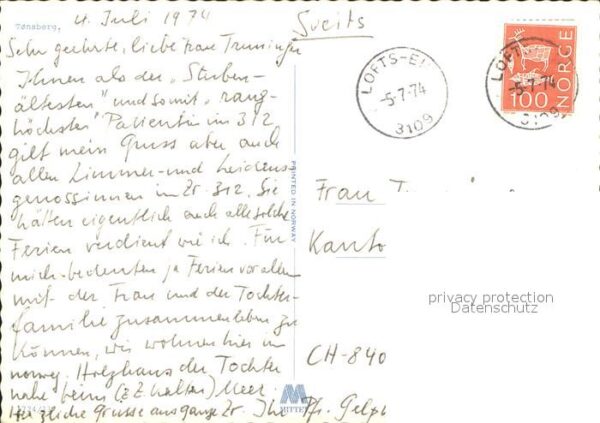 Tønsberg.
4. Juli 1974
Sveits
Sehr geehrte, liebe Frau
Ihnen als der „Stuben-
ältesten" und somit „rang-
höchsten" Patientin im 312
gilt mein Gruss aber auch
allen Zimmer- und Leidens-
genossinnen im Zr. 312. Sie
hätten eigentlich auch alle solche
Ferien verdient wie ich. Für
mich bedeuten ja Ferien vor allem
mit der Frau und der Tochter-
familie zusammenleben zu
können, wir wohnen hier im
norweg. Holzhaus der Tochter
nahe beim (z Z kalten) Meer.
Herzliche Grüsse ans ganze Zr. Ihr Pfr. Gelp
LOFTS-E
-5-7-74
3109
LOFT
-5.7.74
3109
NORGE
100
PRINTED IN NORWAY
Frau T
Kanto
CH-840
privacy protection
Datenschutz
M
MITTET